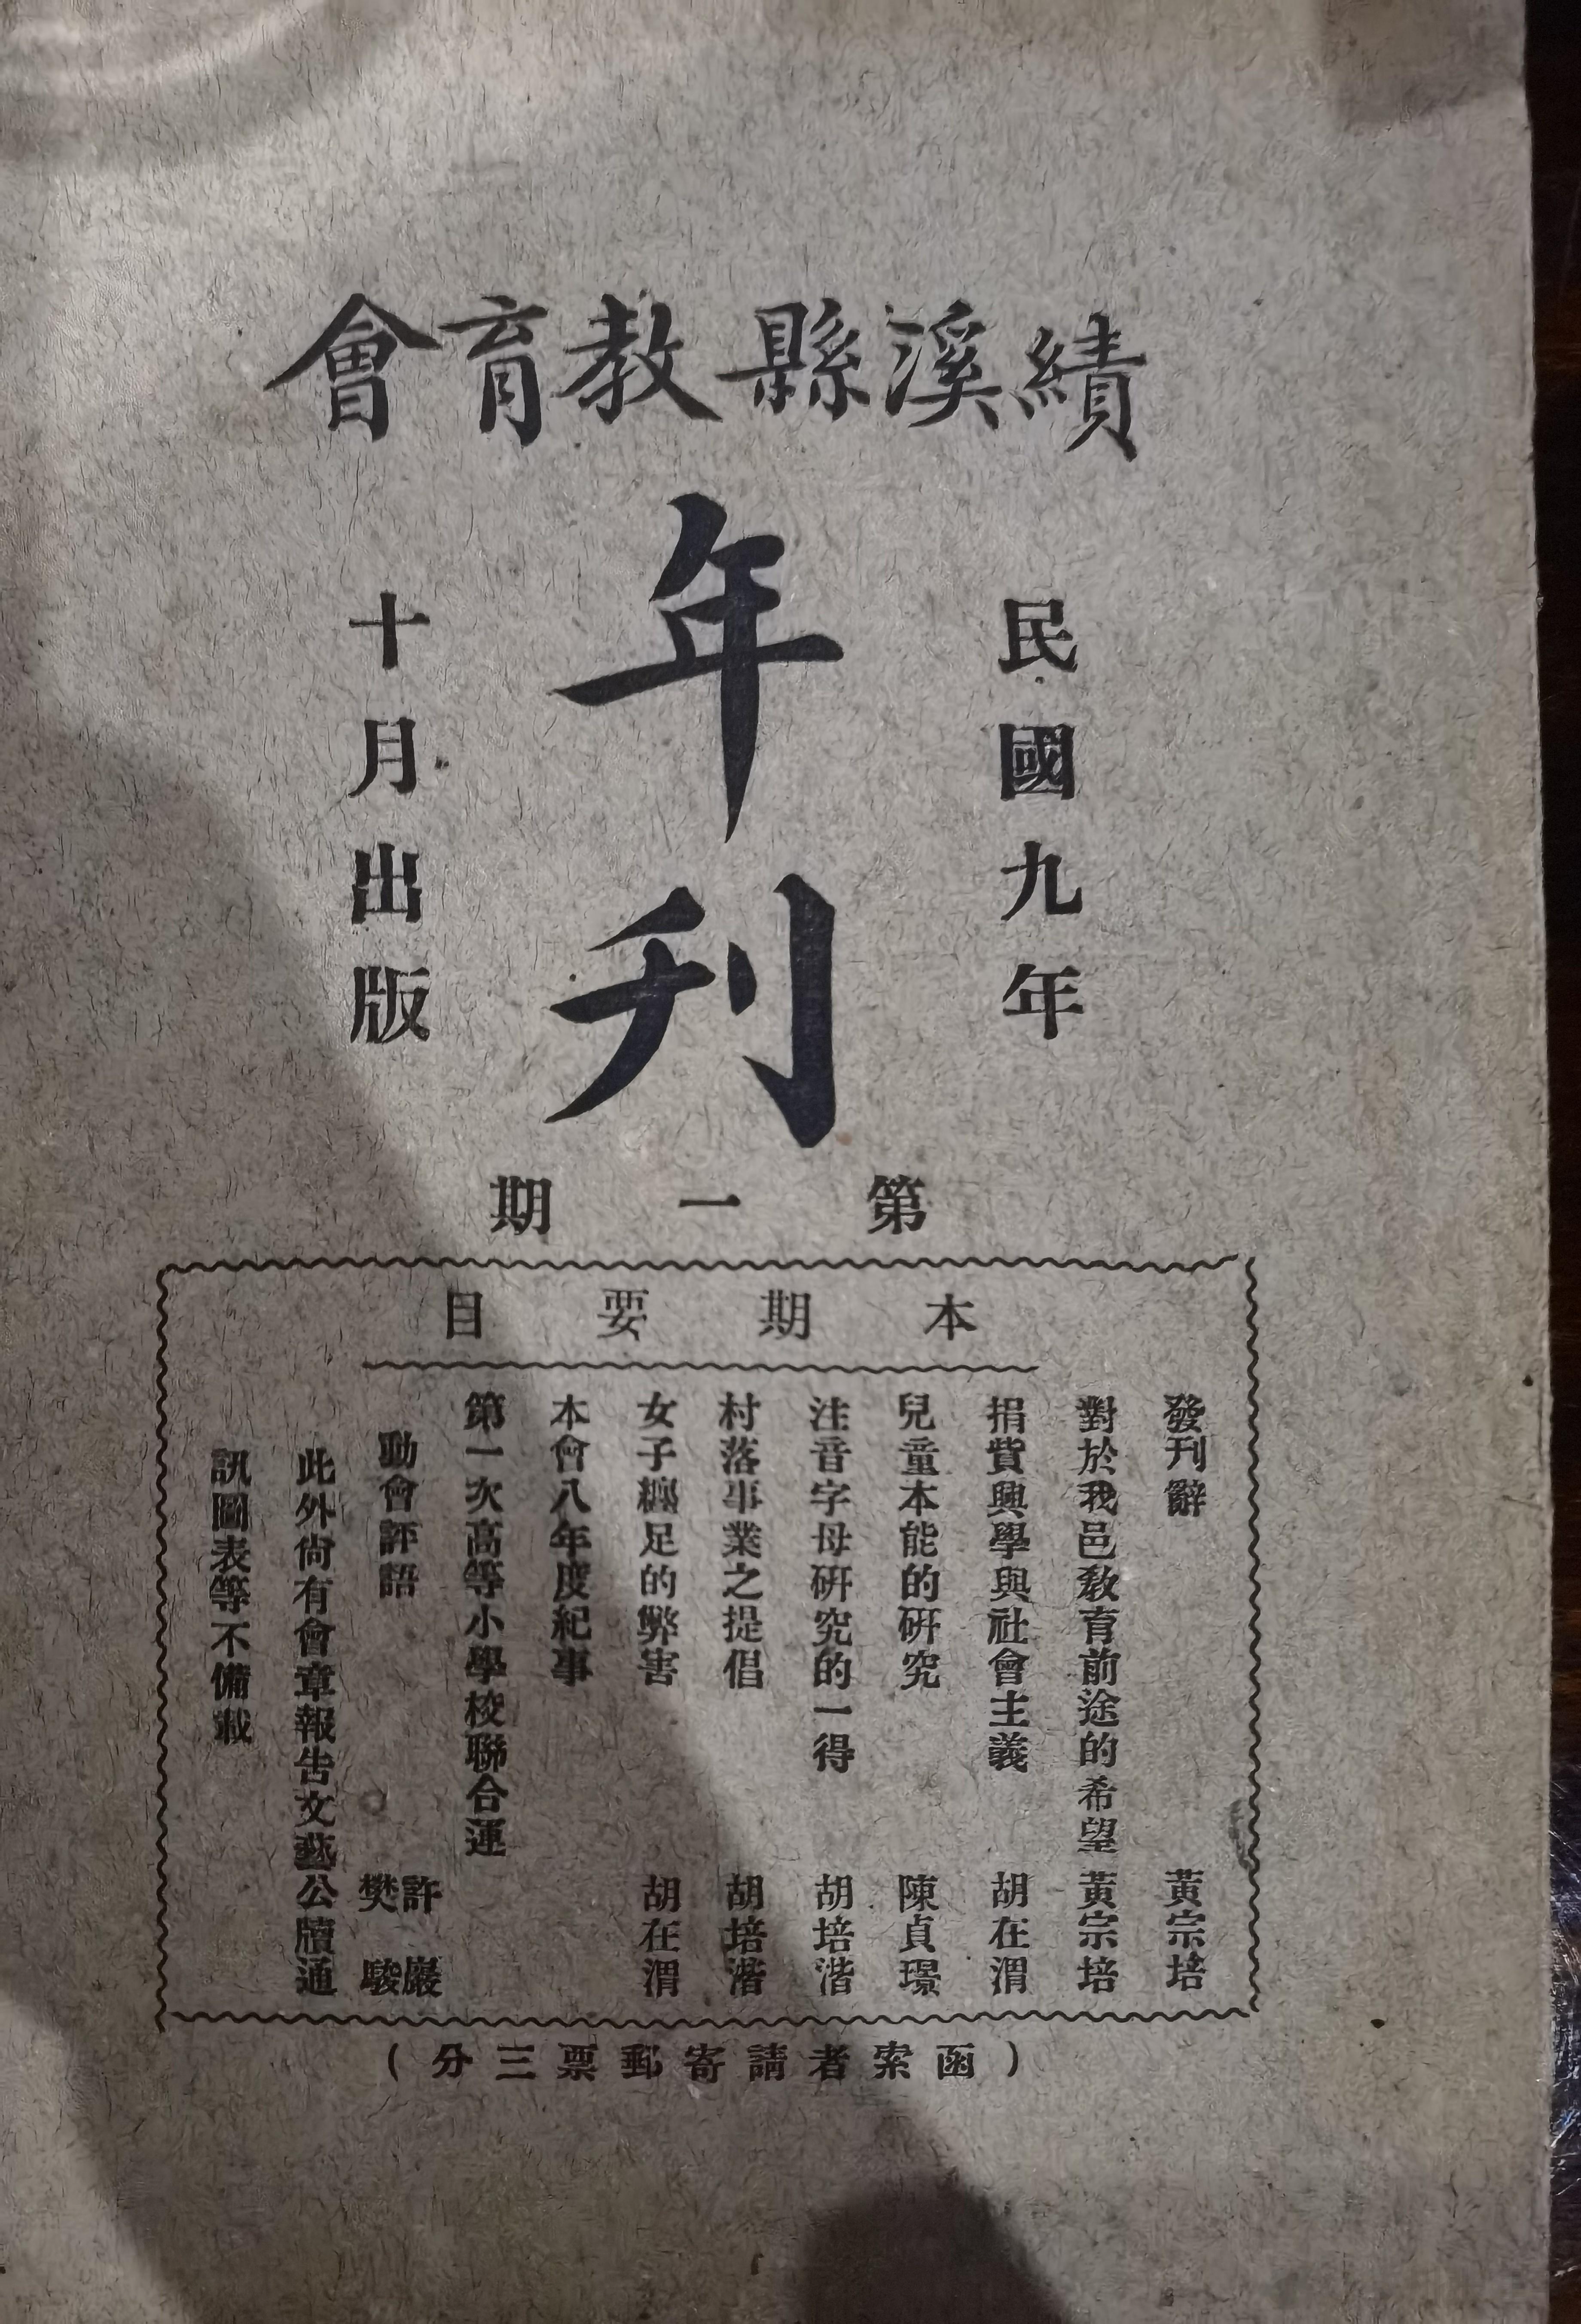 績溪縣教育會
年刊
民國九年
十月出版
第一期
本期要目
發刊辭 黃宗培
對於我邑教育前途的希望 黃宗培
捐貲興學與社會主義 胡在渭
兒童本能的研究 陳貞璟
注音字母研究的一得 胡培潛
村落事業之提倡 胡培潛
女子纏足的弊害 胡在渭
本會八年度紀事
第一次高等小學校聯合運
動會評語 許巖 樊駿
此外尙有會章報告文藝公牘通
訊圖表等不備載
(函索者請寄郵票三分)